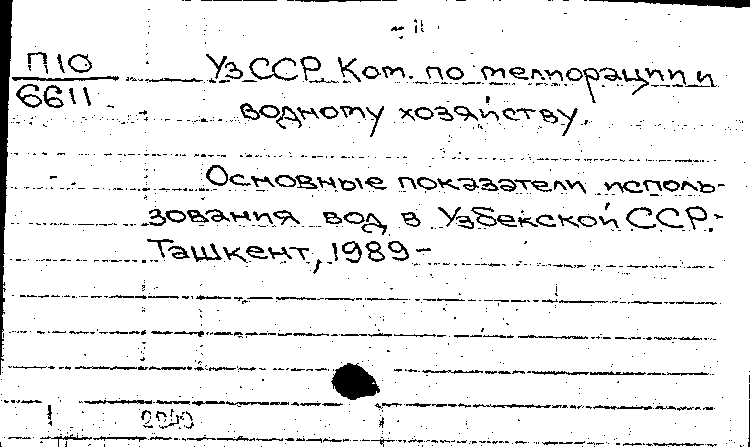 П10
6611
УзССР Ком. по мелиорации и
водному хозяйству.
Основные показатели исполь-
зования вод в Узбекской ССР.-
Ташкент, 1989-